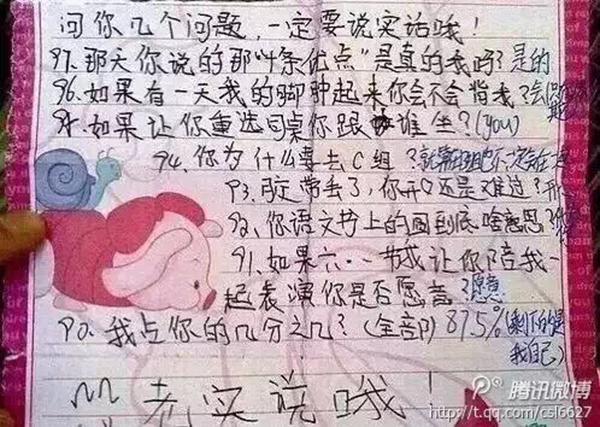 问你几个问题，一定要说实话哦！
97.那天你说的那"4条优点"是真的我吗？是的
96.如果有一天我的脚肿起来你会不会背我？会
95.如果让你重选同桌你跟谁坐？(you)
94.你为什么要去C组？
93.胶带丢了，你开心还是难过？
92.你语文书上的画到底啥意思？
91.如果六·一节我让你陪我一
起表演你是否愿意？愿意
90.我占你的几分之几？(全部) 87.5%(剩下的是
我自己)
老实说哦！
腾讯微博
http://t.qq.com/csl6627